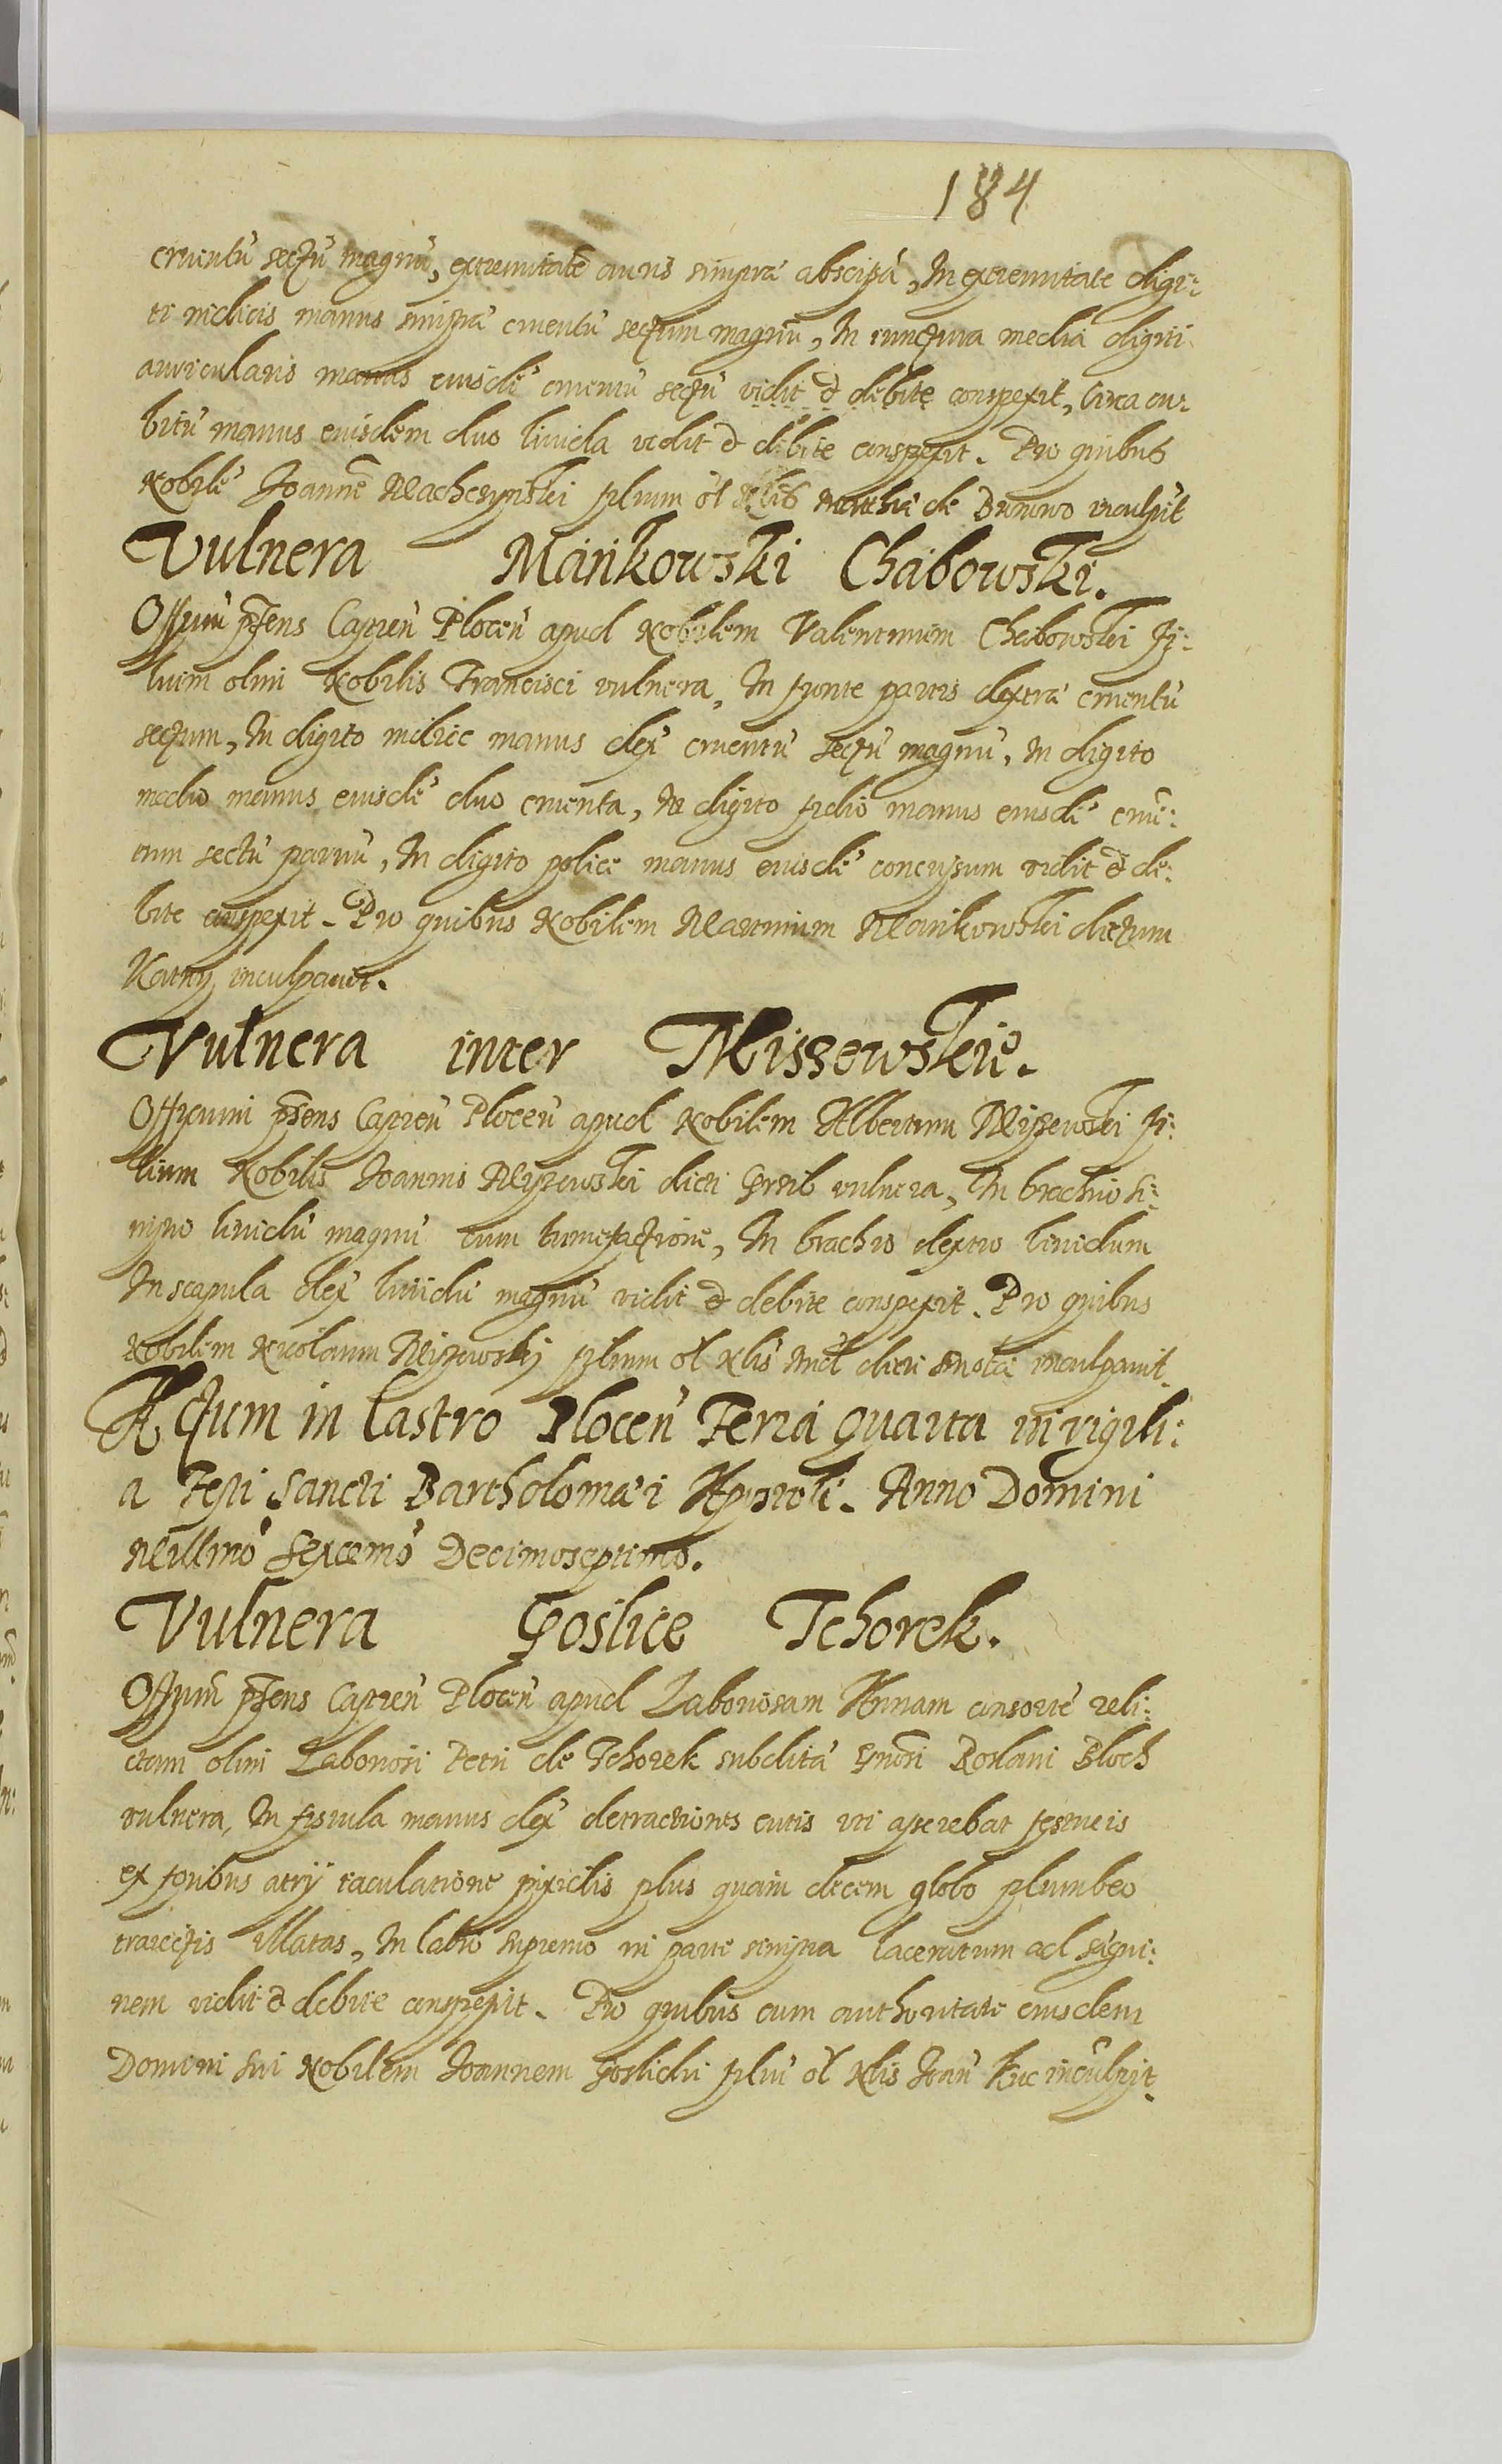 184
cruentū sectū magnū, extremitatē auris sinistrā abscissā, In extremitate digi:
ti indicis manus sinistrā cruentū sectum magnū, In iunctura media digiti
auricularis manus eiusdē cruentū sectū vidit & debite conspexit, Circa cu:
bitū manus eiusdem duo livida vidit & debite conspexit. Pro quibus
Nobilē Joannē Machczynski filium ol Nlis Mathiæ de inculpit
Vulnera Mańkowski Chabowski.
Offium pn̄s Capten̄ Plocen̄ apud Nobilem Valentinum Chabowski fi:
lium olim Nobilis Francisci vulnera, In fronte partis dextrā cruentū
sectum, In digito indice manus dex cruentū sectū magnū, In digito
medio manus eiusdē duo cruenta, In digito manus eiusdē cruē:
tum sectū parvū, In digito police manus eiusdē concussum vidit & de:
bite conspexit. Pro quibus Nobilem Martinum Mankowski dictum
inculpavit.
Vulnera inter Misszewskie.
Officium pn̄s Capten̄ Plocen̄ apud Nobilem Albertum Miszewski fi:
lium Nobilis Joannis Myszewski dicti vulnera, In brachio si:
nistro lividū magnū cum tumefactione, In brachio dextro lividum
In scapula dex lividū magnū vidit & debite conspexit. Pro quibus
Nobilem Nicolaum Miszewskij filium ol Nlis dicti inculpavit.
Actum in Castro Plocen̄ Feria quarta in vigili:
a Festi Sancti Bartholomæi Apostoli. Anno Domini
Millmō Sexcemō Decimoseptimo.
Vulnera Goslice Tchorek.
Offium pn̄s Capten̄ Plocen̄ apud Laboriosam Annam consortē reli:
ctam olim Laboriosi Petri de Tchorek subditā Gnōsi Roslani Bloch
vulnera, In fistula manus dex detractiones cutis uti asserebat festucis
ex foribus atrij iaculatione pixidis plus quam decem globo plumbeo
traiectis illatas, In labio supremo in parte sinistra laceratum ad sāgui:
nem vidit & debite conspexit. Pro quibus cum authoritate eiusdem
Domini sui Nobilem Joannem Goslicki filiū ol Nlis Joān Kuc inculpit.